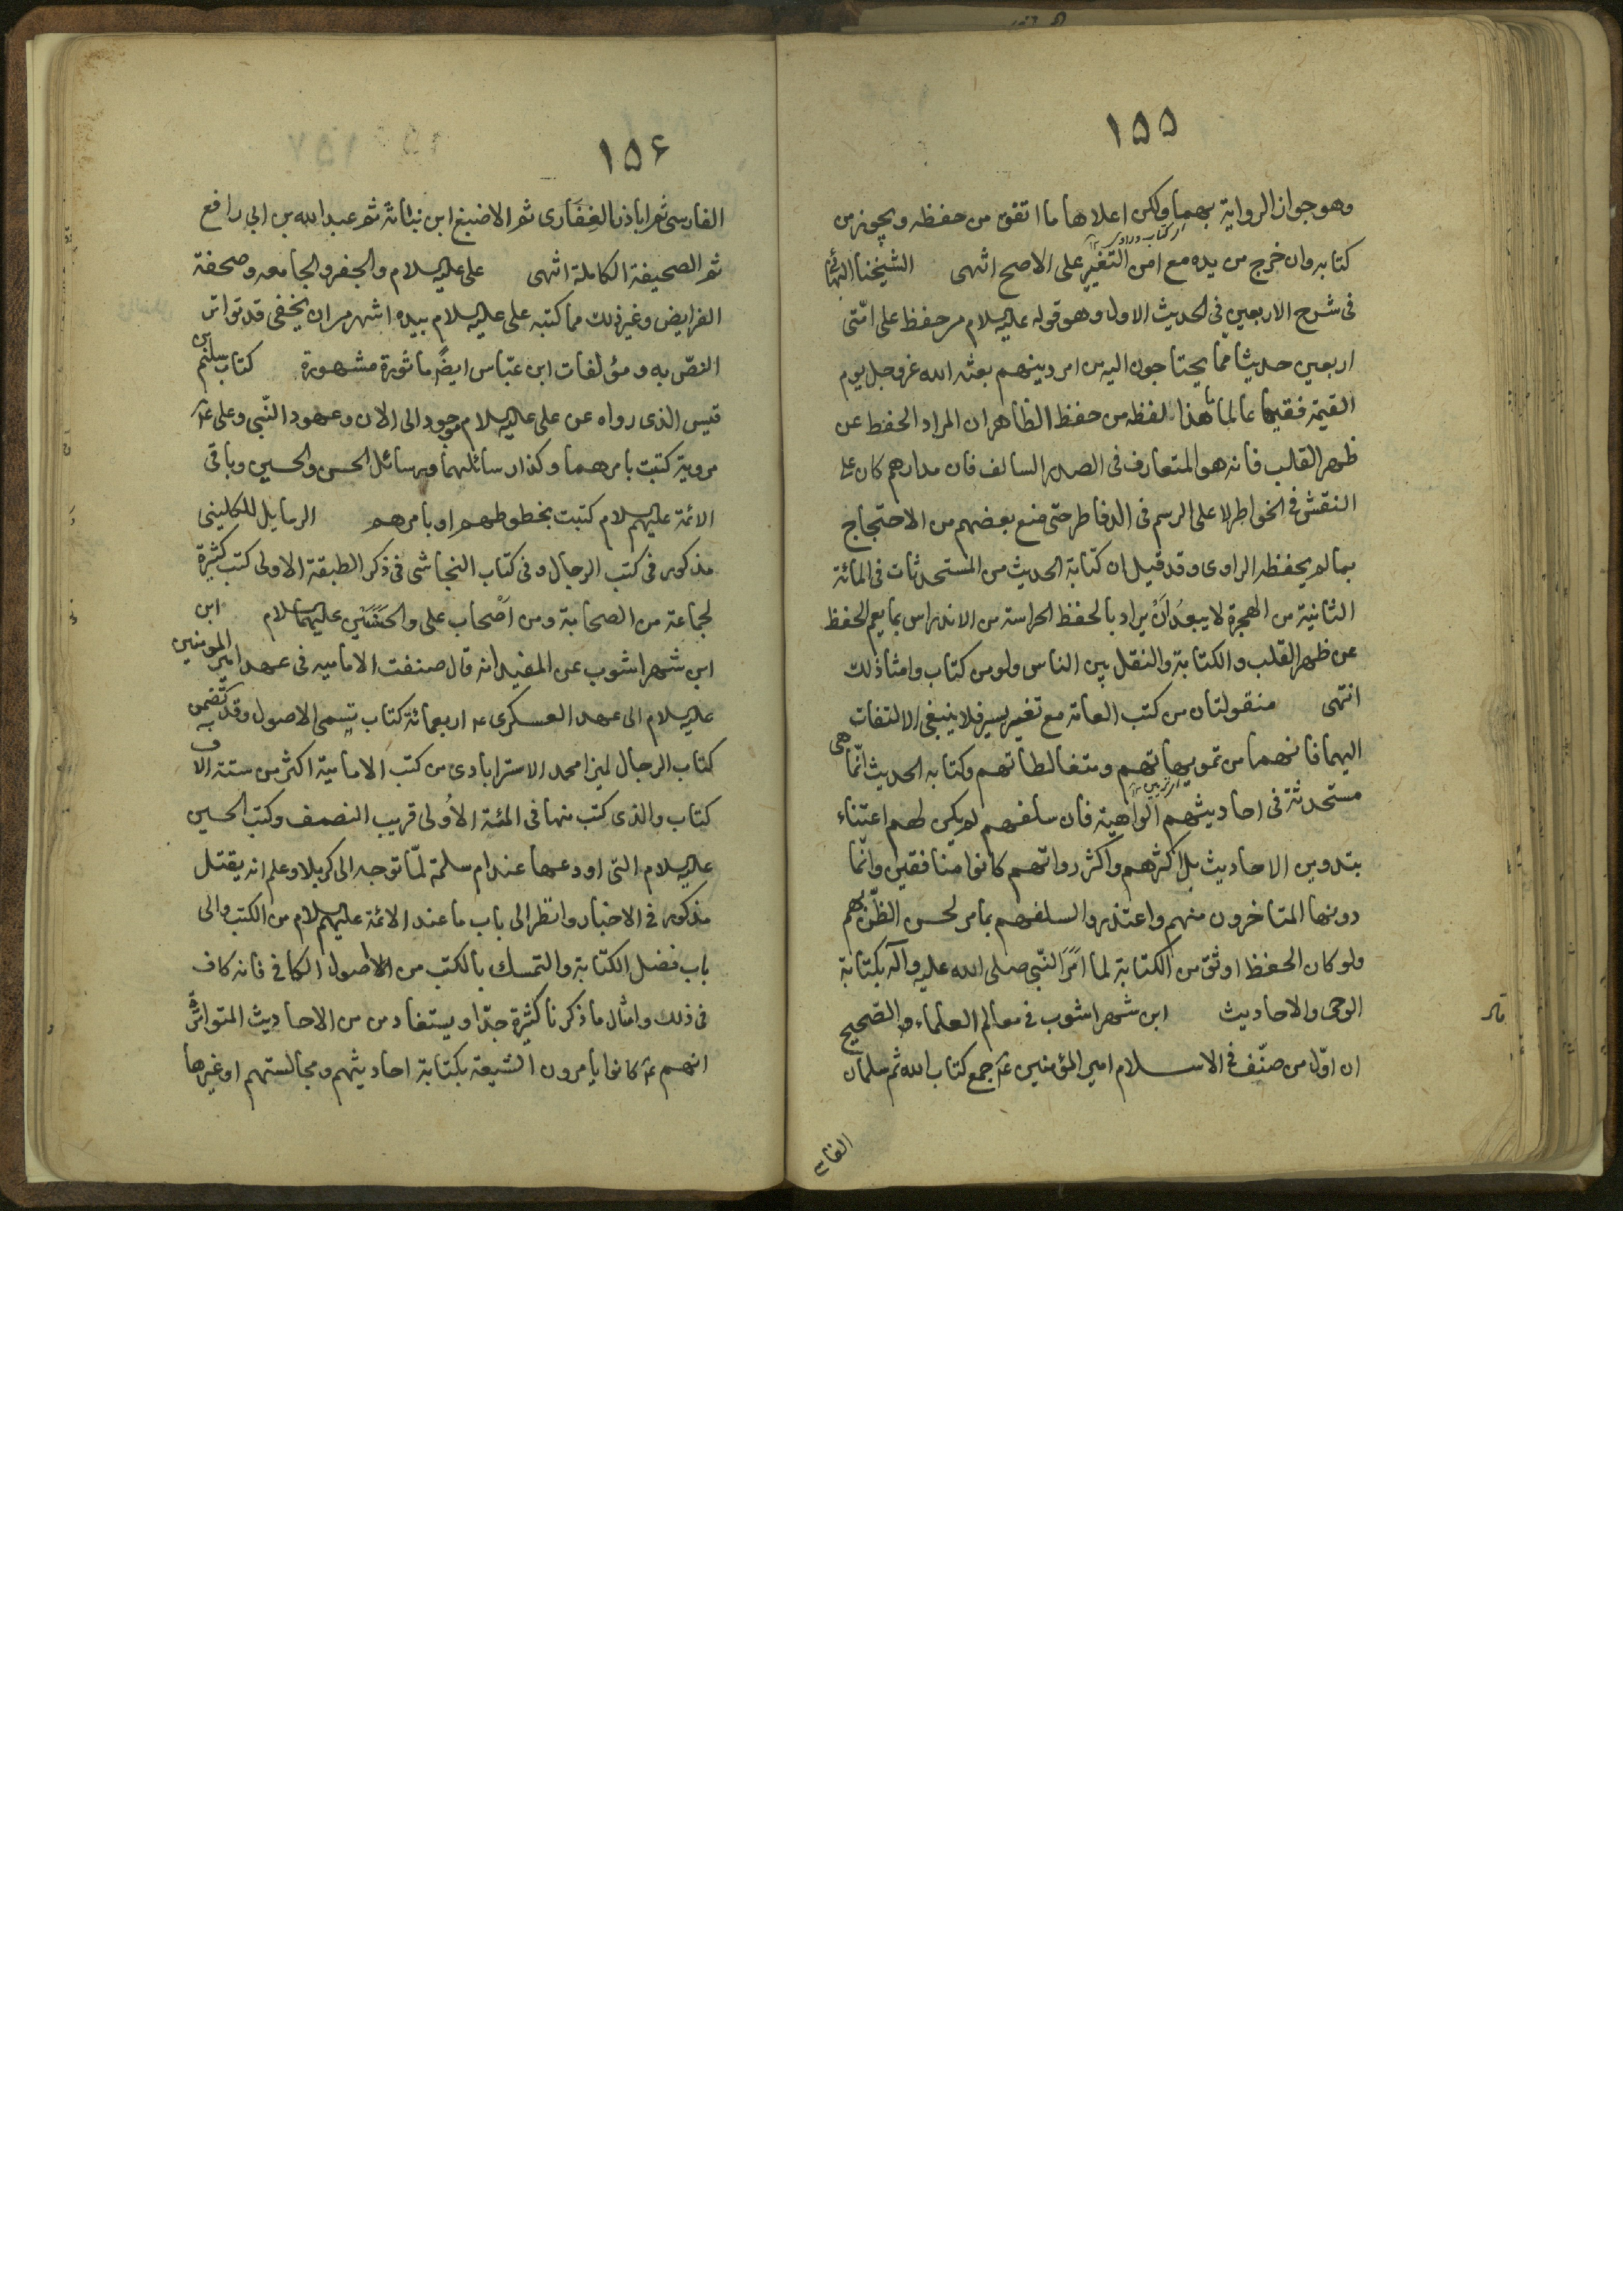 ١۵۵
وهو جواز الرواية بهما ولكن اعلاها ما اتفق من حفظه ويجوز من
كتابه وان خرج من يده مع امن التغير على الاصح انتهى الشيخنا البهائى
فى شرح الاربعين فى الحديث الاول وهو قوله عليه السلام من حفظ على امّتى
اربعين حديثا ممّا يحتاجون اليه من امر دينهم بعثه الله عز وجل يوم
القيمة فقيها عالما هذا لفظه من حفظ الظاهر ان المراد الحفظ عن
ظهر القلب فانه هو المتعارف فى الصدر السالف فان مدارهم كان على
النقش فى الخواطر لا على الرسم فى الدفاطر حتى منع بعضهم من الاحتجاج
بما لم يحفظه الراوى وقد قيل ان كتابة الحديث من المستحدثات فى المائة
الثانية من الهجرة لا يبعد اَنْ يراد بالحفظ الحراسة من الاندراس بما يعم الحفظ
عن ظهر القلب والكتابة والنقل بين الناس ولو من كتاب وامثا ذلك
انتهى منقولتان من كتب العامة مع تغيير يسير فلا ينبغى الالتفات
اليهما فانهما من تمويهاتهم ومتغالطاتهم وكتابه الحديث انّما هى
مستحدثة فى احاديثهم الواهية فان سلفهم لم يكن لهم اعتناء
بتدوين الاحاديث بل اكثرهم واكثر رواتهم كانوا منافقين وانّما
دونها المتاخرون منهم واعتذروا لسلفهم بما مر لحسن الظّن بهم
ولو كان الحفظ اوثق من الكتابة لما امَرَ النبّى صلى الله عليه وآله بكتابة
الوحى والاحاديث ابن شهراشوب فى معالم العلماء والصّحيح
ان اوّل من صنّف فى الاسلام امير المؤمنين ع جمع كتاب الله ثم سلمان
١۵۶
الفارسى ثم اباذر الغِفَارى ثم الاضبغ ابن نباتة ثم عبد الله بن ابى رافع
ثم الصحيفة الكاملة انتهى على عليه السلام والجفر والجامعه وصحفة
الفرايض وغير ذلك مما كتبه على عليه السلام بيده اشهر من ان يخفى قد تواتر
النصّ به ومؤلفات ابن عبّاس ايضًا ماثورة مشهورة كتاب سليم بن
قيس الذى رواه عن على عليه السلام موجود الى الان وعهود النّبى وعلى ع
مروية كتبت بامرهما وكذا رسائلهما ورسائل الحسن والحسين وباقى
الائمة عليهم السلام كتبت بخطوطهم او بامرهم الرسايل للكلينى
مذكور فى كتب الرجال وفى كتاب النجاشى فى ذكر الطبقة الاولى كتب كثيرة
لجماعة من الصحابة ومن اَصْحاب على والحَسَنَين عليهما السلام ابن
ابن شهراشوب عن المفيد انه قال صنفت الاماميه فى عهد امير المومنين
عليه السلام الى عهد العسكرى ع اربعمائة كتاب يسمى الاصول وقد تضمن
كتاب الرجال لميرزا محمد الاسترابادى من كتب الامامية اكثر من ستة الاف
كتاب والذى كتب منها فى المئة الاُولى قريب النصف وكتب الحسين
عليه السلام التى اودعها عند ام سلمة لمّا توجه الى كربلا وعلم انه يقتل
مذكور فى الاخبار وانظر الى باب ما عند الائمة عليهم السلام من الكتب والى
باب فضل الكتّابة والتمسك بالكتب من الاصول الكافى فانه كاف
فى ذلك وامثال ما ذكرنا كثيرة جدّا ويستفاد من من الاحاديث المتواترة
انهم ع كانوا يامرون الشيعة بكتابة احاديثهم ومجالستهم او غيرها